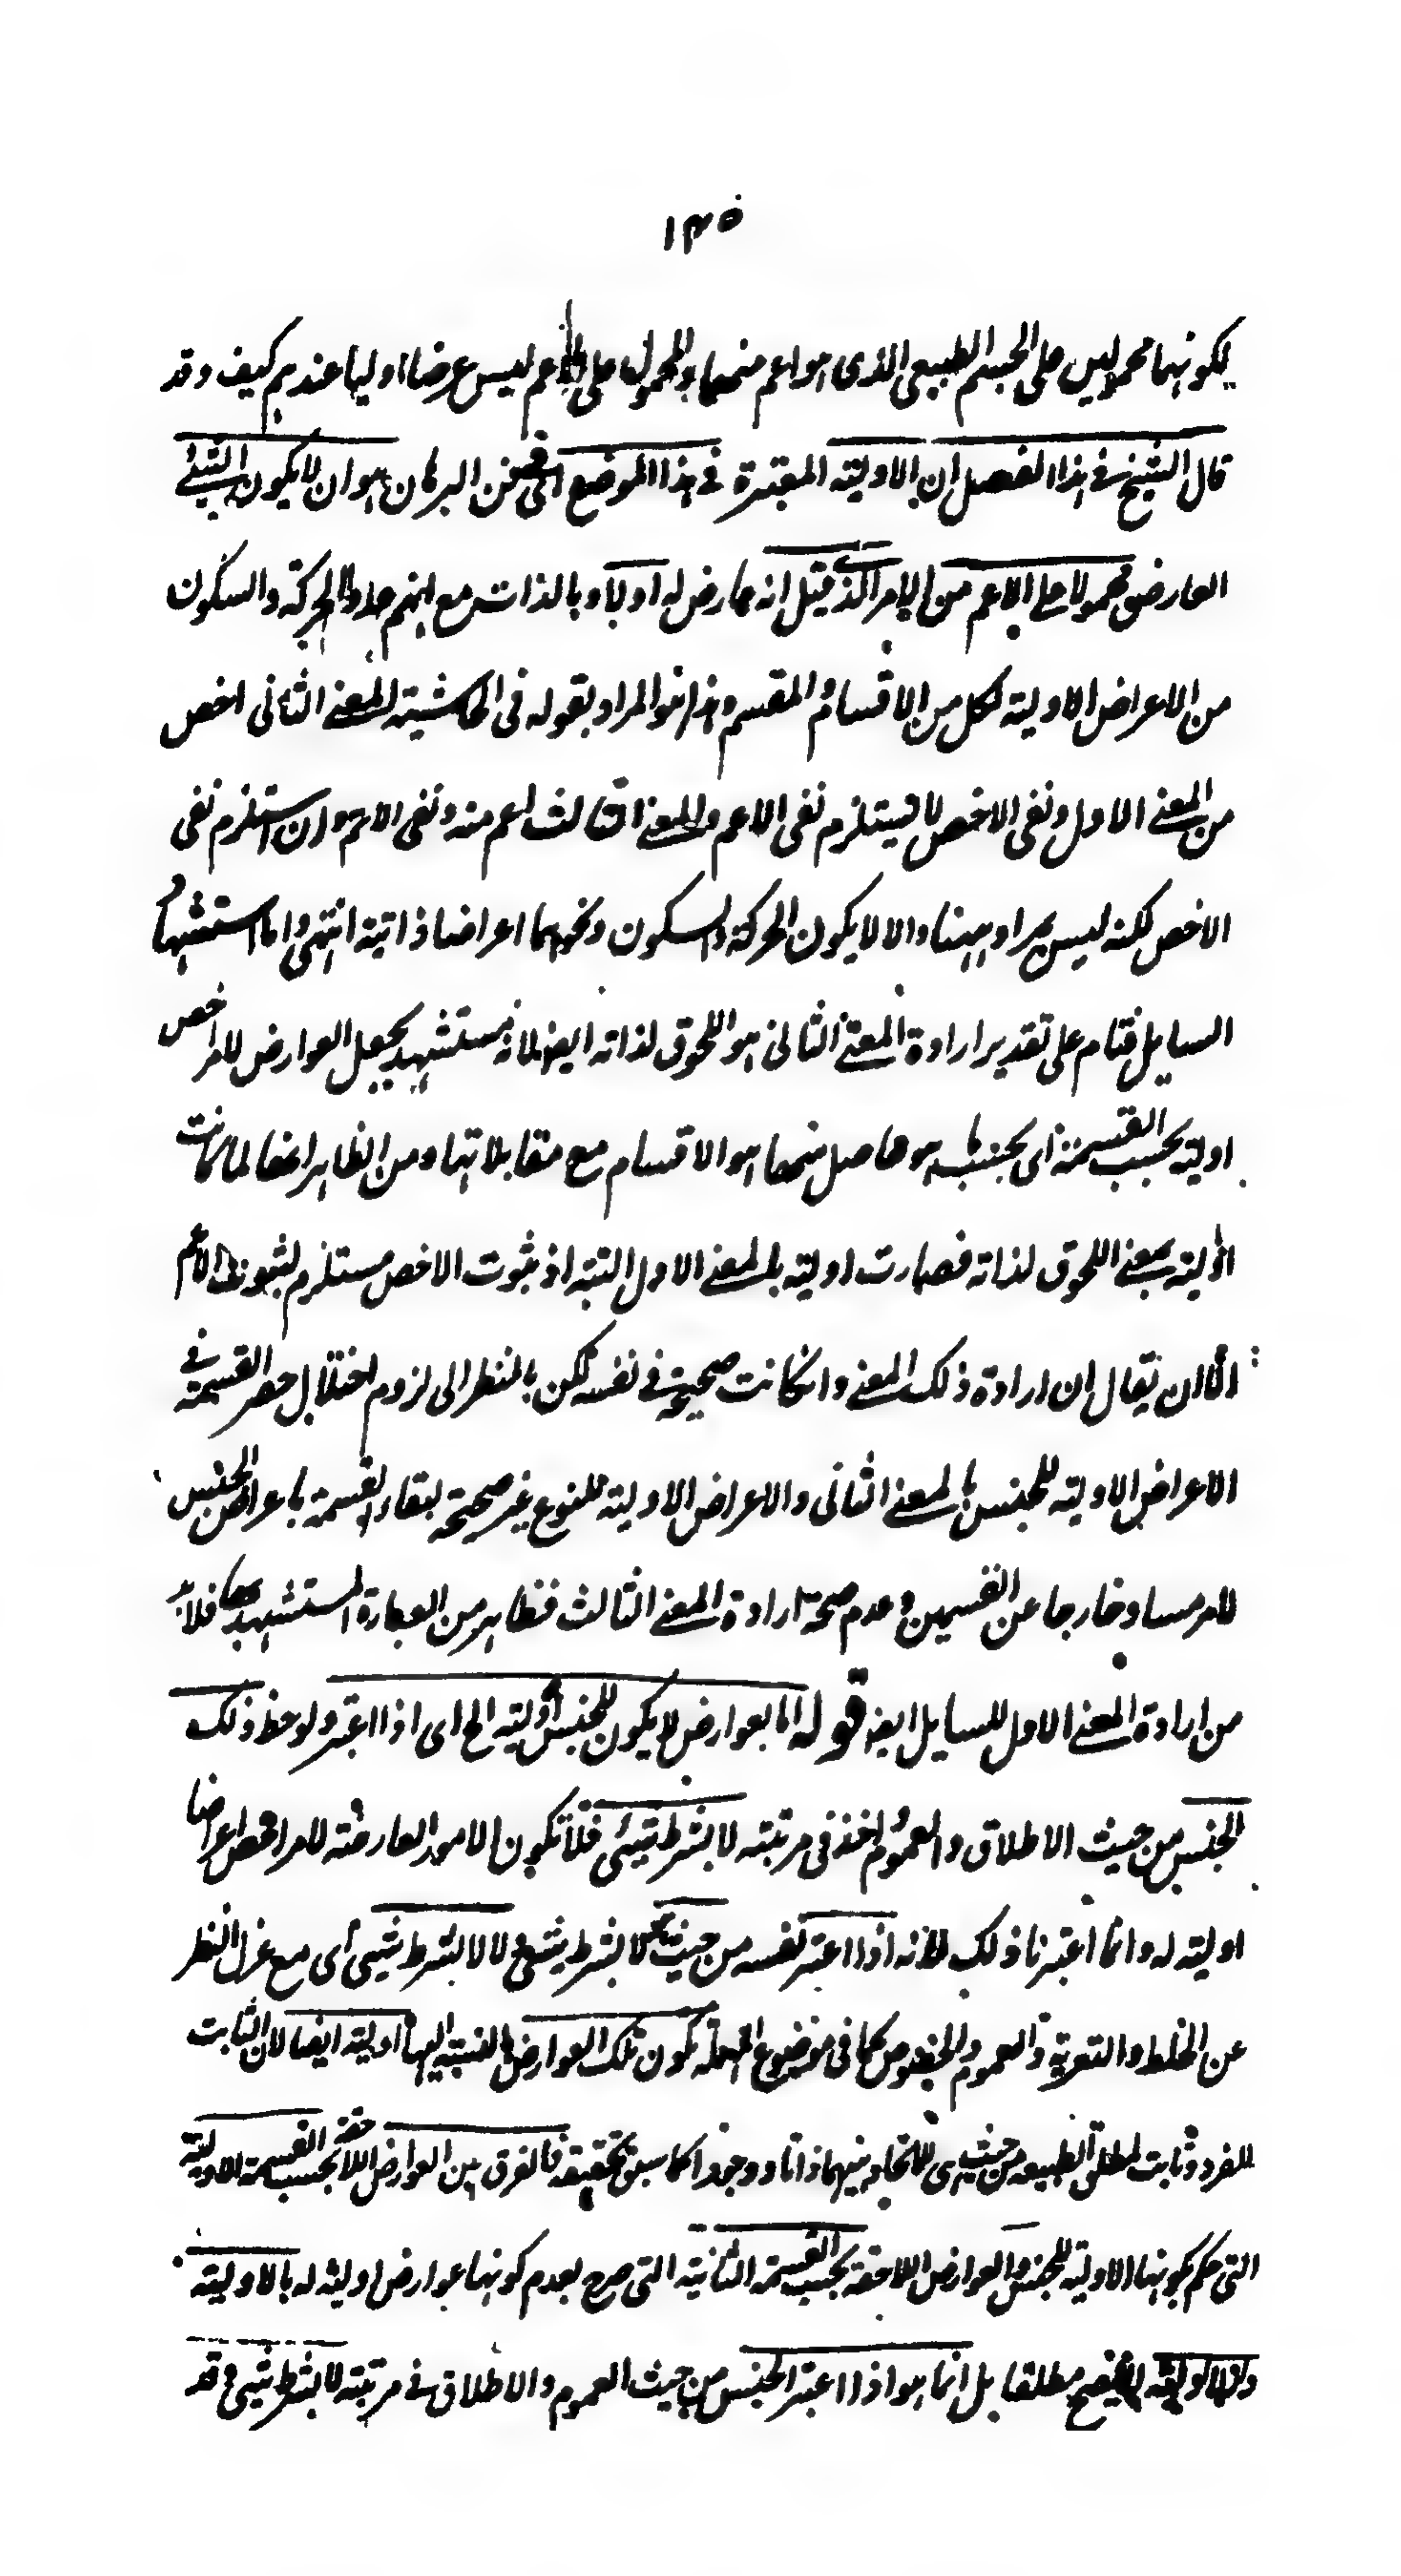 ١٣٥
لكونهما محمولين على الجسم الطبيعى الذى هو اعم منهما والمحمول على الاعم ليس عرضا اوليا عندهم كيف وقد
قال الشيخ فى هذا الفصل ان الاولية المعتبرة فى هذا الموضع اى فى فن البرهان هو ان لا يكون الشيئ
العارض محمولا على الاعم من الامر الذى قيل انه عارض له اولا وبالذات مع انهم عدوا الحركة والسكون
من الاعراض الاولية لكل من الاقسام والمقسم وهذا هو المراد بقوله فى الحاشية المعنى الثانى اخص
من المعنى الاول ونفى الاخص لا يستلزم نفى الاعم والمعنى الثالث اعم منه ونفى الاعم وان استلزم نفى
الاخص لكنه ليس بمراد ههنا والا لا يكون الحركة والسكون ونحوهما اعراضا ذاتية انتهى واما استشهاد
السايل فتام على تقدير ارادة المعنى الثانى هو اللحوق لذاته ايضا لانه مستشهد بجعل العوارض للامر اخص
اولية بحسب القسمة اى بحسب ما هو حاصل منهما هو الاقسام مع مقابلاتها ومن الظاهر انها لما كانت
اولية بمعنى اللحوق لذاته فصارت اولية بالمعنى الاول البتة اذ ثبوت الاخص مستلزم لثبوت الاعم
الا ان يقال ان ارادة ذلك المعنى وان كانت صحيحة فى نفسه لكن بالنظر الى لزوم اختلال حصر القسمة فى
الاعراض الاولية للجنس بالمعنى الثانى والاعراض الاولية للنوع غير صحيحة لبقاء القسمة باعراض الجنس
للامر مساو خارجا عن القسمين وعدم صحة ارادة المعنى الثالث فظاهر من العبارة المستشهد بها فلا بد
من ارادة المعنى الاول للسايل ايضا قوله اما بعوارض لا يكون للجنس اولية الخ اى اذا اعتبر ولوحظ ذلك
الجنس من حيث الاطلاق والعموم اخذ فى مرتبة لا بشرط شيئ فلا تكون الامور العارضة للامر اخص اعراضا
اولية له وانما اعتبرنا ذلك لانه اذا اعتبر نفسه من حيث لا بشرط شيئ لا لا بشرط شيئ اى مع عزل النظر
عن الخلط والتعرية والعموم والخصوص كما فى موضوع المهملة تكون تلك العوارض بالنسبة اليها اولية ايضا لان الثابت
للفرد ثابت لمطلق الطبيعة من حيث هى للاتحاد بينهما ذاتا ووجودا كما سبق تحقيقه فالفرق بين العوارض اللاحقة بحسب القسمة الاولية
التى حكم بكونها الاولية للجنس والعوارض اللاحقة بحسب القسمة الثانية التى صرح بعدم كونها عوارض اولية له بالاولية
مطلقا بل انما هو اذا اعتبر الجنس من حيث العموم والاطلاق فى مرتبة لا بشرط شيئ وقد